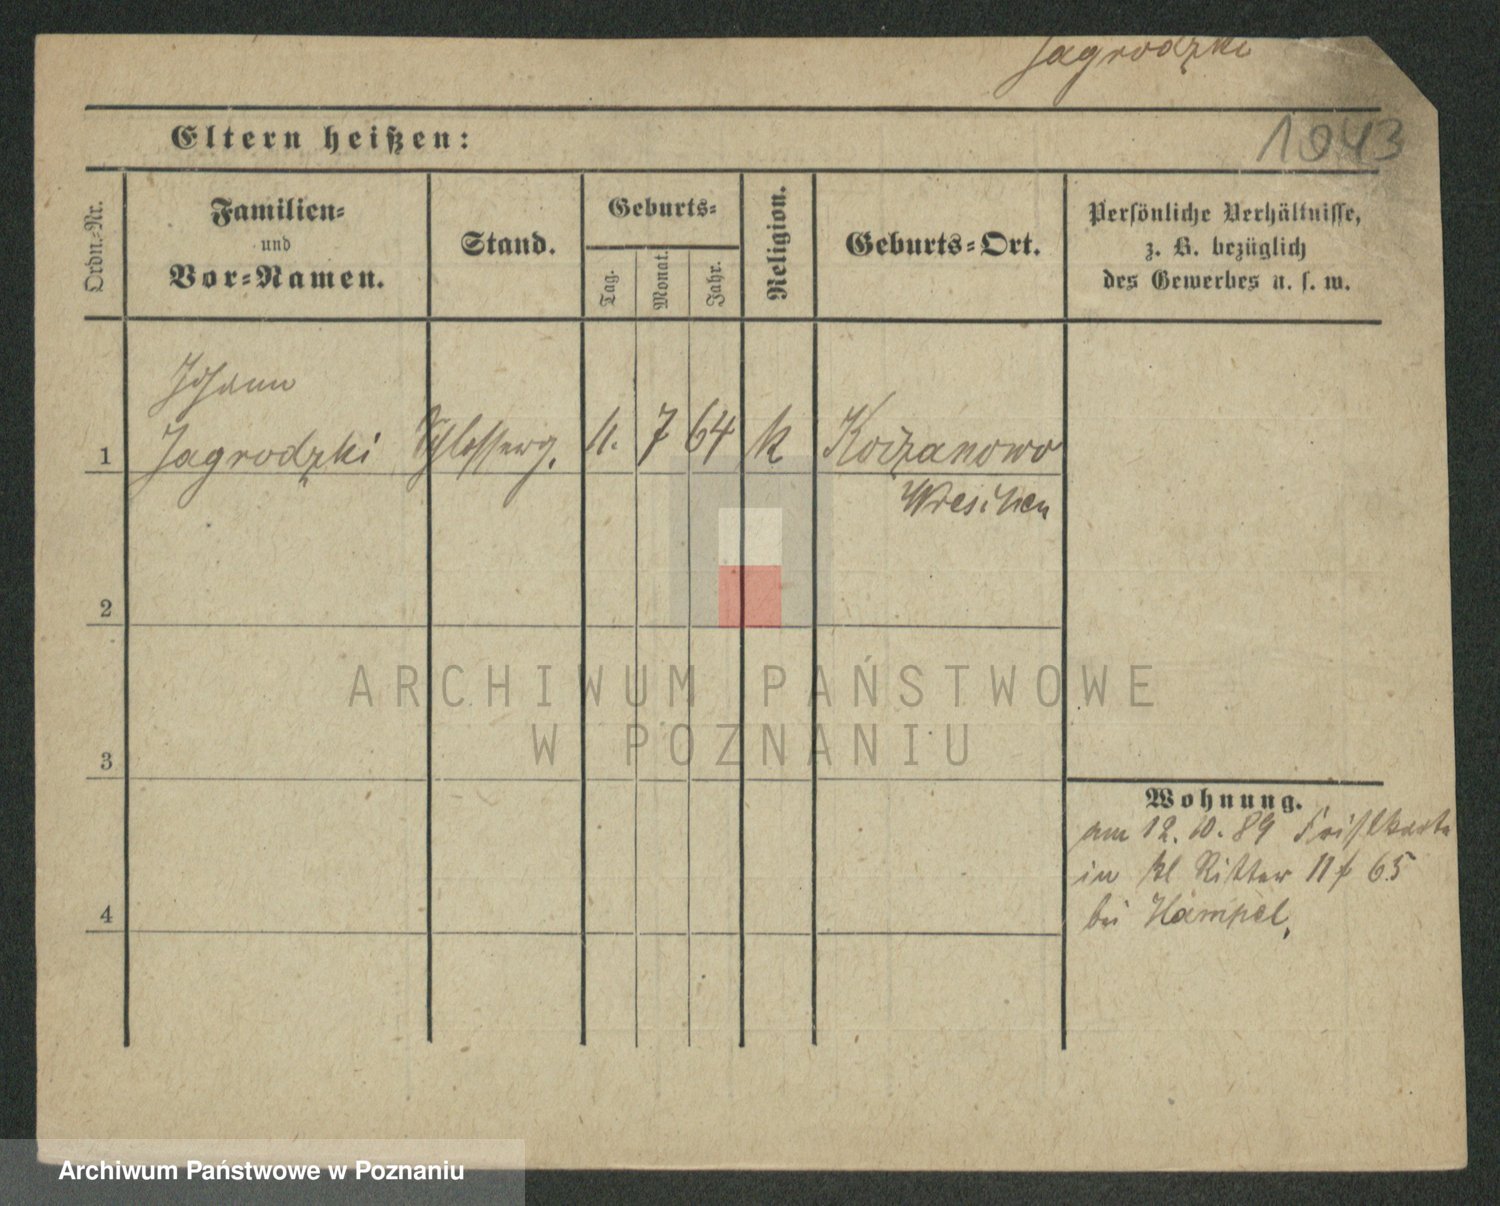 Jagrodzki
1943
Eltern heißen:
Ordn.-Nr.
Familien-
und
Vor-Namen.
Stand.
Geburts-
Tag.
Monat.
Jahr.
Religion.
Geburts-Ort.
Persönliche Verhältnisse,
z. B. bezüglich
des Gewerbes u. s. w.
Johann
1 Jagrodzki Schlosserg. 11. 7 64 k
Wreschen
2
3
4
Wohnung.
am 12. 10. 89
in kl Ritter 65
bei Hampel.
ARCHIWUM PAŃSTWOWE
W POZNANIU
Archiwum Państwowe w Poznaniu